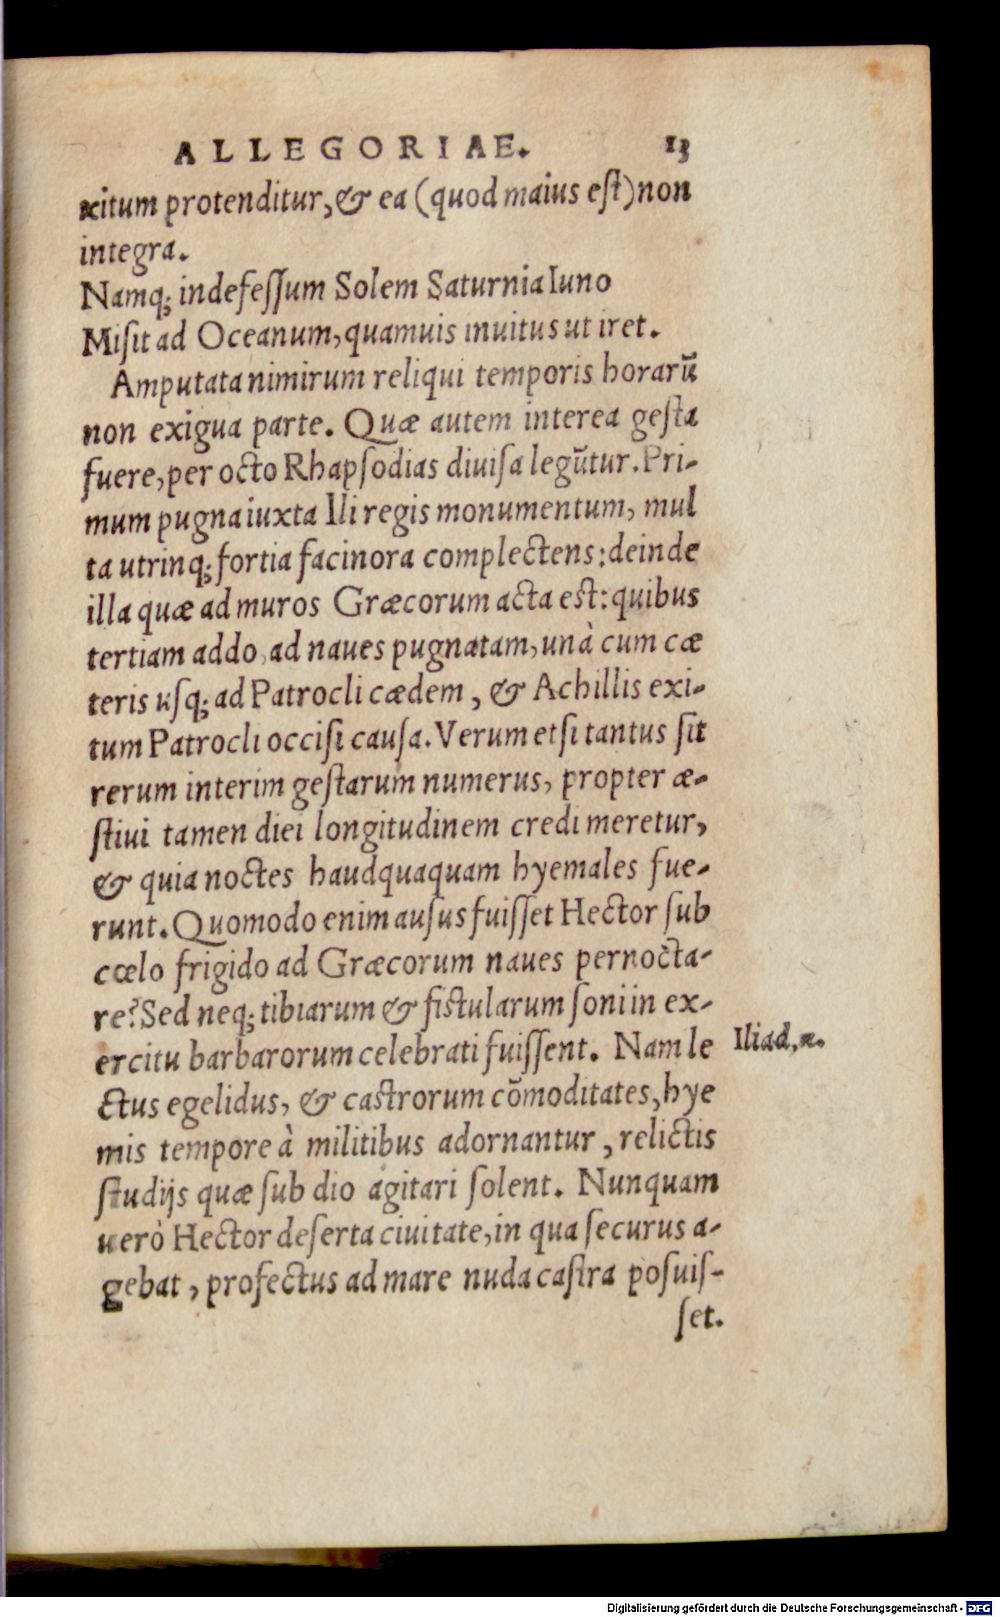 ALLEGORIAE. 13
xitum protenditur, & ea (quod maius eſt) non
integra.
Namq; indefeſſum Solem Saturnia Iuno
Miſit ad Oceanum, quamuis inuitus ut iret.
Amputata nimirum reliqui temporis horarū
non exigua parte. Quæ autem interea geſta
fuere, per octo Rhapſodias diuiſa legūtur. Pri-
mum pugna iuxta Ili regis monumentum, mul
ta utrinq; fortia facinora complectens: deinde
illa quæ ad muros Græcorum acta est: quibus
tertiam addo ad naues pugnatam, unà cum cæ
teris uſq; ad Patrocli cædem, & Achillis exi-
tum Patrocli occiſi cauſa. Verum etſi tantus ſit
rerum interim geſtarum numerus, propter æ-
ſtiui tamen diei longitudinem credi meretur,
& quia noctes haudquaquam hyemales fue-
runt. Quomodo enim auſus fuiſſet Hector ſub
cœlo frigido ad Græcorum naues pernocta-
re? Sed neq; tibiarum & fiſtularum ſoni in ex-
ercitu barbarorum celebrati fuiſſent. Nam le
Iliad, κ.
ctus egelidus, & caſtrorum cōmoditates, hye
mis tempore à militibus adornantur, relictis
ſtudijs quæ ſub dio agitari ſolent. Nunquam
uerò Hector deſerta ciuitate, in qua ſecurus a-
gebat, profectus ad mare nuda caſtra poſuiſ-
ſet.
Digitalisierung gefördert durch die Deutsche Forschungsgemeinschaft - DFG